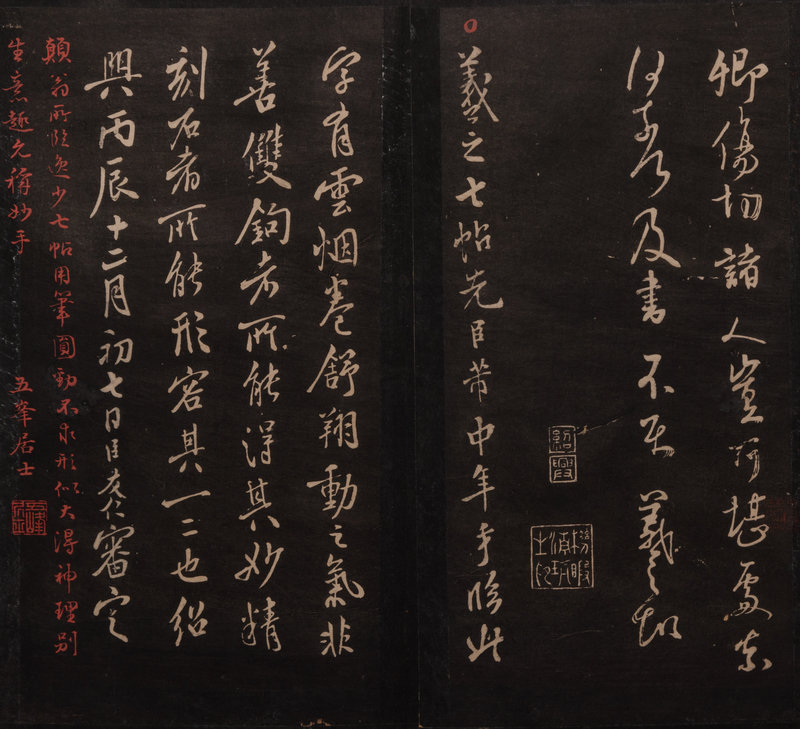 卿傷切諸人豈可堪處奈
何奈何及書不具羲之頓
羲之七帖先臣芾中年手臨此
字有雲烟卷舒翔動之氣非
善雙鉤者所能得其妙精
刻石者所能形容其一二也紹
興丙辰十二月初七日臣友仁審定
顛翁所臨逸少七帖用筆圓勁不求形似大得神理別
生意趣尤稱妙手
五峯居士
紹興